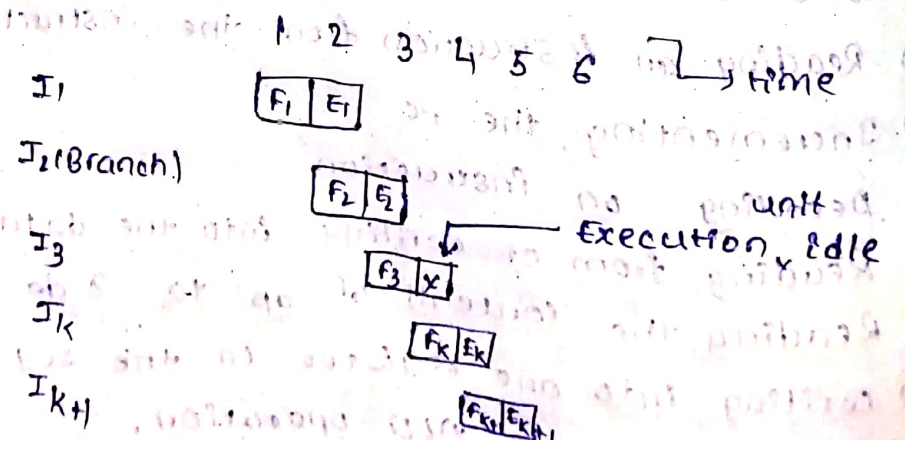 1 2 3 4 5 6 → time
I1 F1 E1
I2(Branch) F2 E2
unit
Execution, idle
I3 F3 X
Ik Fk Ek
Ik+1 Fk+1 Ek+1